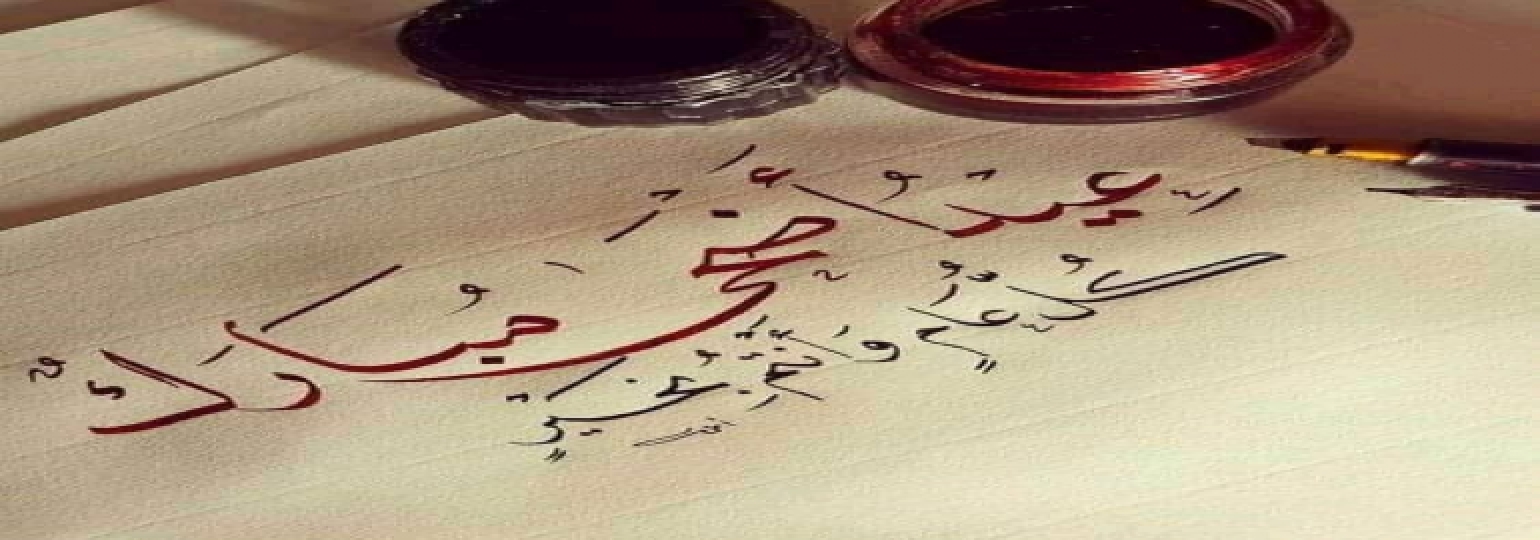 عيدُ أضحى مُبَارَكٌ
كُلُّ عَامٍ وَأَنْتُمْ بِخَيْرٍ